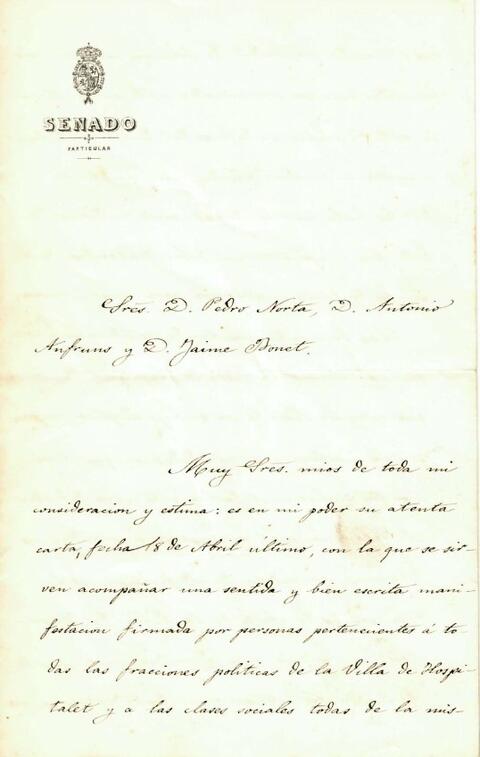 SENADO
PARTICULAR
Sres. D. Pedro Norta, D. Antonio
Anfruns y D. Jaime Bonet.
Muy Sres. mios de toda mi
consideracion y estima: es en mi poder su atenta
carta, fecha 18 de Abril último, con la que se sir-
ven acompañar una sentida y bien escrita mani-
festacion firmada por personas pertenecientes á to-
das las fracciones políticas de la Villa de Hospi-
talet y á las clases sociales todas de la mis-